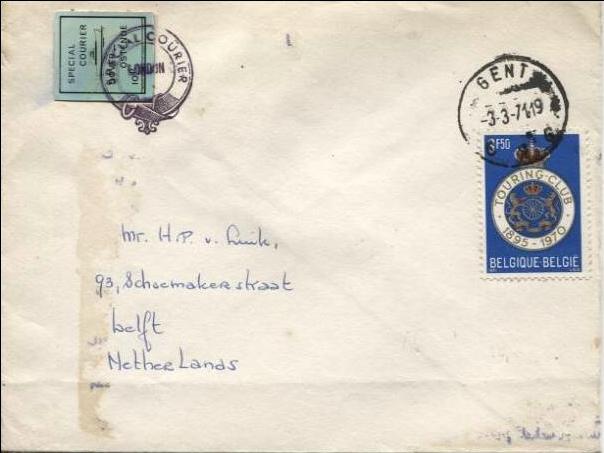 SPECIAL
COURIER
DOVER-
OSTENDE
COURIER
LONDON
GENT
-3-3-71·19
G
G
3F50
TOURING-CLUB
1895-1970
BELGIQUE-BELGIË
Mr. H.P. v. Luik,
93, Schoemakerstraat
Delft
Netherlands